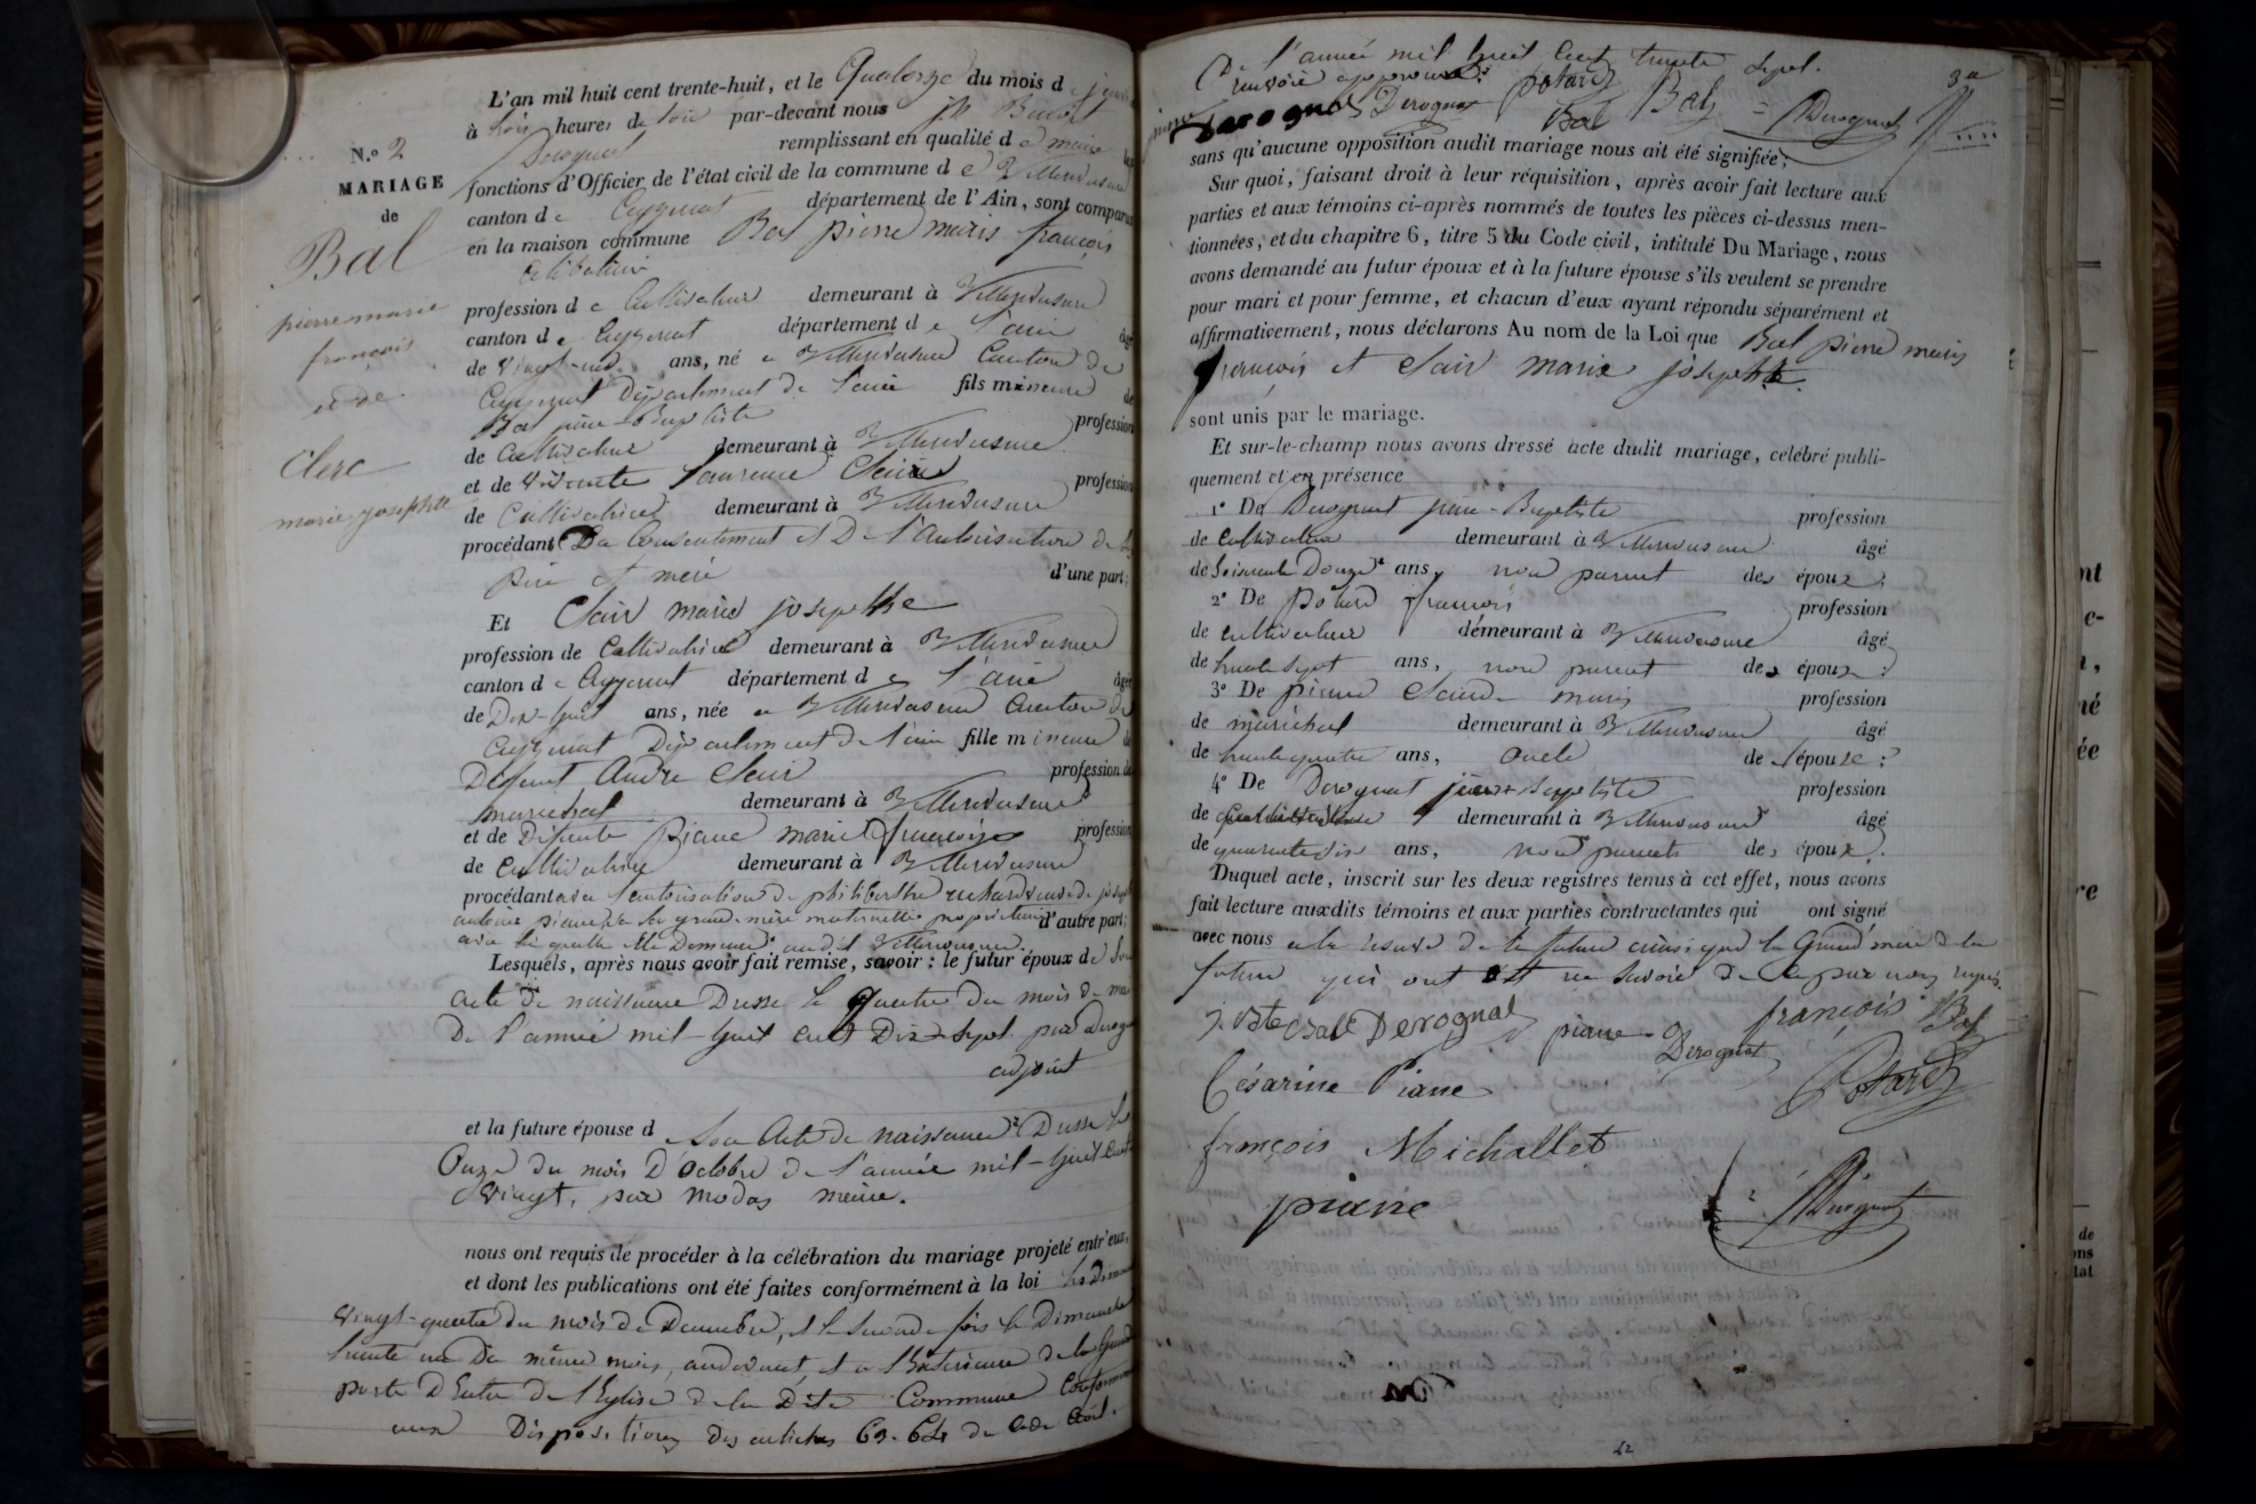 N.o 2
MARIAGE
de
Bal
pierre marie
françois
et de
Clerc
marie josephte
L'an mil huit cent trente-huit, et le Quatorze du mois d
à trois heures de soir par-devant nous jh Benoit
Derognat remplissant en qualité d e maire les
fonctions d'Officier de l'état civil de la commune d e Villereversure
canton d e Ceyzeriat département de l'Ain, sont comparus
en la maison commune Bal pierre marie françois
célibataire
profession d e Cultivateur demeurant à Villereversure
canton d e Ceyzeriat département d e l'ain âgé
de vingt-un ans, né a Villereversure Canton de
Ceyzeriat Département de l'ain fils mineur de
Bal jean-Baptiste profession
de Cultivateur demeurant à Villereversure
et de vivante Laurence Clair profession
de Cultivatrice demeurant à Villereversure
procédant Du Consentement et De l'autorisation de ses
père et mère d'une part;
Et Clair marie josephte
profession de Cultivatrice demeurant à Villereversure
canton d e Ceyzeriat département d e l'ain âgée
de Dix-huit ans, née a Villereversure Canton de
Ceyzeriat Département de l'ain fille mineure de
Défunt André Clair profession de
maréchal demeurant à Villereversure
et de Défunte Piane marie françoise profession
de Cultivatrice demeurant à Villereversure
procédant de l'autorisation de philiberthe veuve de joseph
antoine piane, sa grand-mère maternelle propriétaire d'autre part;
avec laquelle elle Demeure audit Villereversure.
Lesquels, après nous avoir fait remise, savoir : le futur époux de son
acte de naissance Dressé le quatre du mois de mai
De l'année mil-huit cent Dix-sept par Derognat
adjoint
et la future épouse d Son Acte de naissance Dressé le
Onze du mois D'octobre de l'année mil-huit Cent
vingt, par modas maire.
nous ont requis de procéder à la célébration du mariage projeté entr'eux,
et dont les publications ont été faites conformément à la loi les Dimanche
vingt-quatre du mois de Décembre, et la seconde fois le Dimanche
trente un Du même mois, audevant, et a l'Extérieure de la Grande
porte D'Entrée de l'Eglise de la Dite Commune Conformément
aux Dispositions des articles 63. 64 du Code Civil.
De l'année mil huit Cent trente sept.
renvoie approuvé. potard Bal
Derognat Derognat Bal Derognat
sans qu'aucune opposition audit mariage nous ait été signifiée;
Sur quoi, faisant droit à leur réquisition, après avoir fait lecture aux
parties et aux témoins ci-après nommés de toutes les pièces ci-dessus men-
tionnées, et du chapitre 6, titre 5 du Code civil, intitulé Du Mariage, nous
avons demandé au futur époux et à la future épouse s'ils veulent se prendre
pour mari et pour femme, et chacun d'eux ayant répondu séparément et
affirmativement, nous déclarons Au nom de la Loi que Bal pierre marie
françois et Clair marie josephte
sont unis par le mariage.
Et sur-le-champ nous avons dressé acte dudit mariage, célébré publi-
quement et en présence
1° De Derognat jean-Baptiste profession
de Cultivateur demeurant à Villereversure âgé
de Soixante Douze ans, non parent des époux;
2° De Potard françois profession
de cultivateur demeurant à Villereversure âgé
de trente sept ans, non parent des époux;
3° De piane Claude marie profession
de maréchal demeurant à Villereversure âgé
de trente quatre ans, oncle de l'épouse;
4° De Derognat jean Baptiste profession
de Cultivateur demeurant à Villereversure âgé
de quarante dix ans, non parent des époux.
Duquel acte, inscrit sur les deux registres tenus à cet effet, nous avons
fait lecture auxdits témoins et aux parties contractantes qui ont signé
avec nous a la réserve de la future ainsi que la Grand'mère de la
future qui ont dit ne savoir de ce par nous requis.
j. bte Bal Derognat piane Derognat françois Bal
Césarine Piane Potard
françois Michallet
piane Derognat